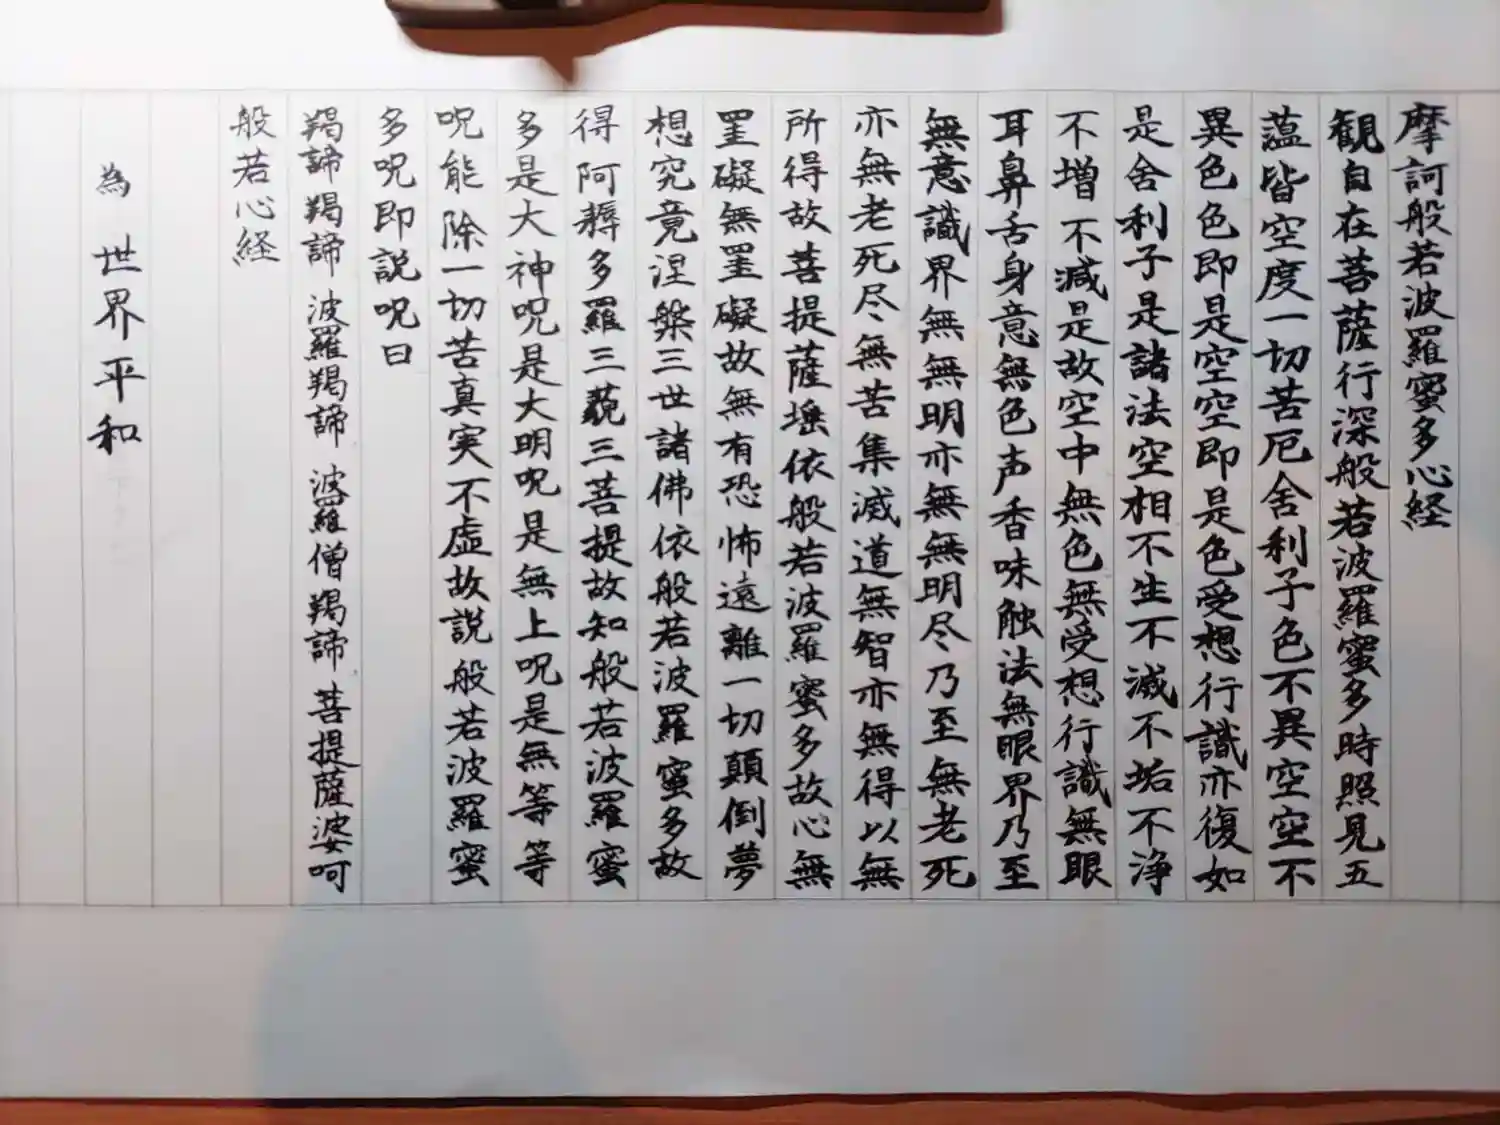 摩訶般若波羅蜜多心経
観自在菩薩行深般若波羅蜜多時照見五
蘊皆空度一切苦厄舍利子色不異空空不
異色色即是空空即是色受想行識亦復如
是舍利子是諸法空相不生不滅不垢不浄
不増不減是故空中無色無受想行識無眼
耳鼻舌身意無色声香味触法無眼界乃至
無意識界無無明亦無無明尽乃至無老死
亦無老死尽無苦集滅道無智亦無得以無
所得故菩提薩埵依般若波羅蜜多故心無
罣礙無罣礙故無有恐怖遠離一切顛倒夢
想究竟涅槃三世諸佛依般若波羅蜜多故
得阿耨多羅三藐三菩提故知般若波羅蜜
多是大神呪是大明呪是無上呪是無等等
呪能除一切苦真実不虚故説般若波羅蜜
多呪即説呪曰
羯諦羯諦 波羅羯諦 波羅僧羯諦 菩提薩婆呵
般若心経
為 世界平和